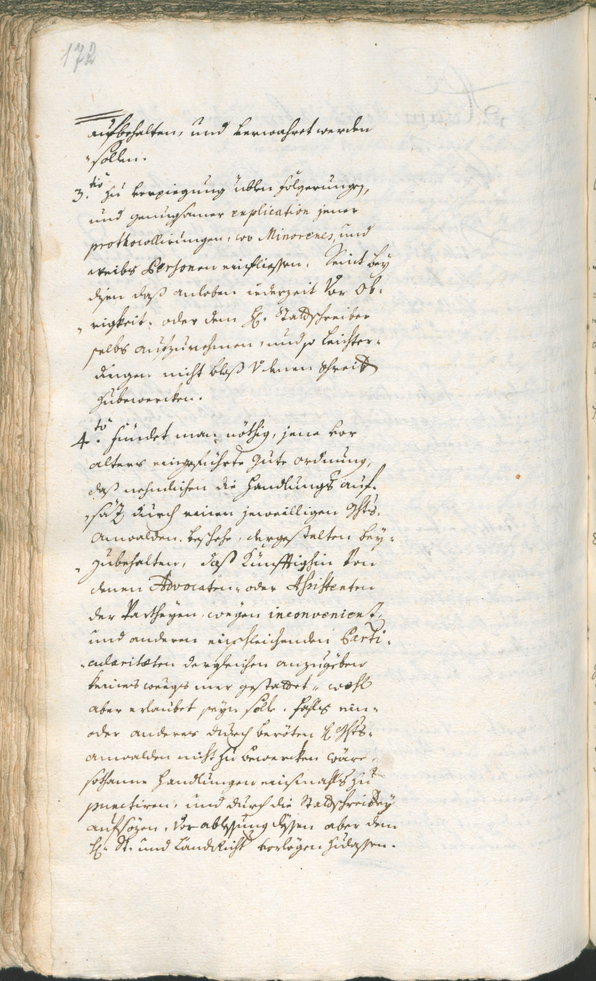 172
aufbehalten, und verwahret werden
sollen.
3.tio Zu verpiegung üblen folgerungen,
und genugsamer explication jener
prothocollirungen, wo Minorenes, und
weibs Persohnen einfliessen, seint bey
disen daß anloben iederzeit vor Ob¬
rigkeit, oder dem H. Stattschreiber
selbs aufzunehmen, und so leichter¬
dingen nicht bloß denen
zubemercken.
4.to Findet man nöthig, jene vor
alters eingeführte gute ordnung,
daß nehmlichen die Handlungs auf¬
säz durch einen jeweilligen Ghts¬
anwalden beschehe, dergestalten bey¬
zubehalten, daß künfftighin von
denen Advocaten, oder Assistenten
der Partheyen wegen inconvenienz,
und anderen einschleichenden Parti¬
cularitæten dergleichen anzugeben
keineswegs mer gestattet, wohl
aber erlaubet seyn solle, fahls ein¬
oder anderes durch berürten H. Ghts¬
anwalden nicht zu bemercken wäre,
sothanne Handlungen nichmahls zu
punctiren, und durch die Stattschreiberey
aufsözen, vor ablesung dessen aber dem
H. St. und Landricht. vorlegen zulassen.